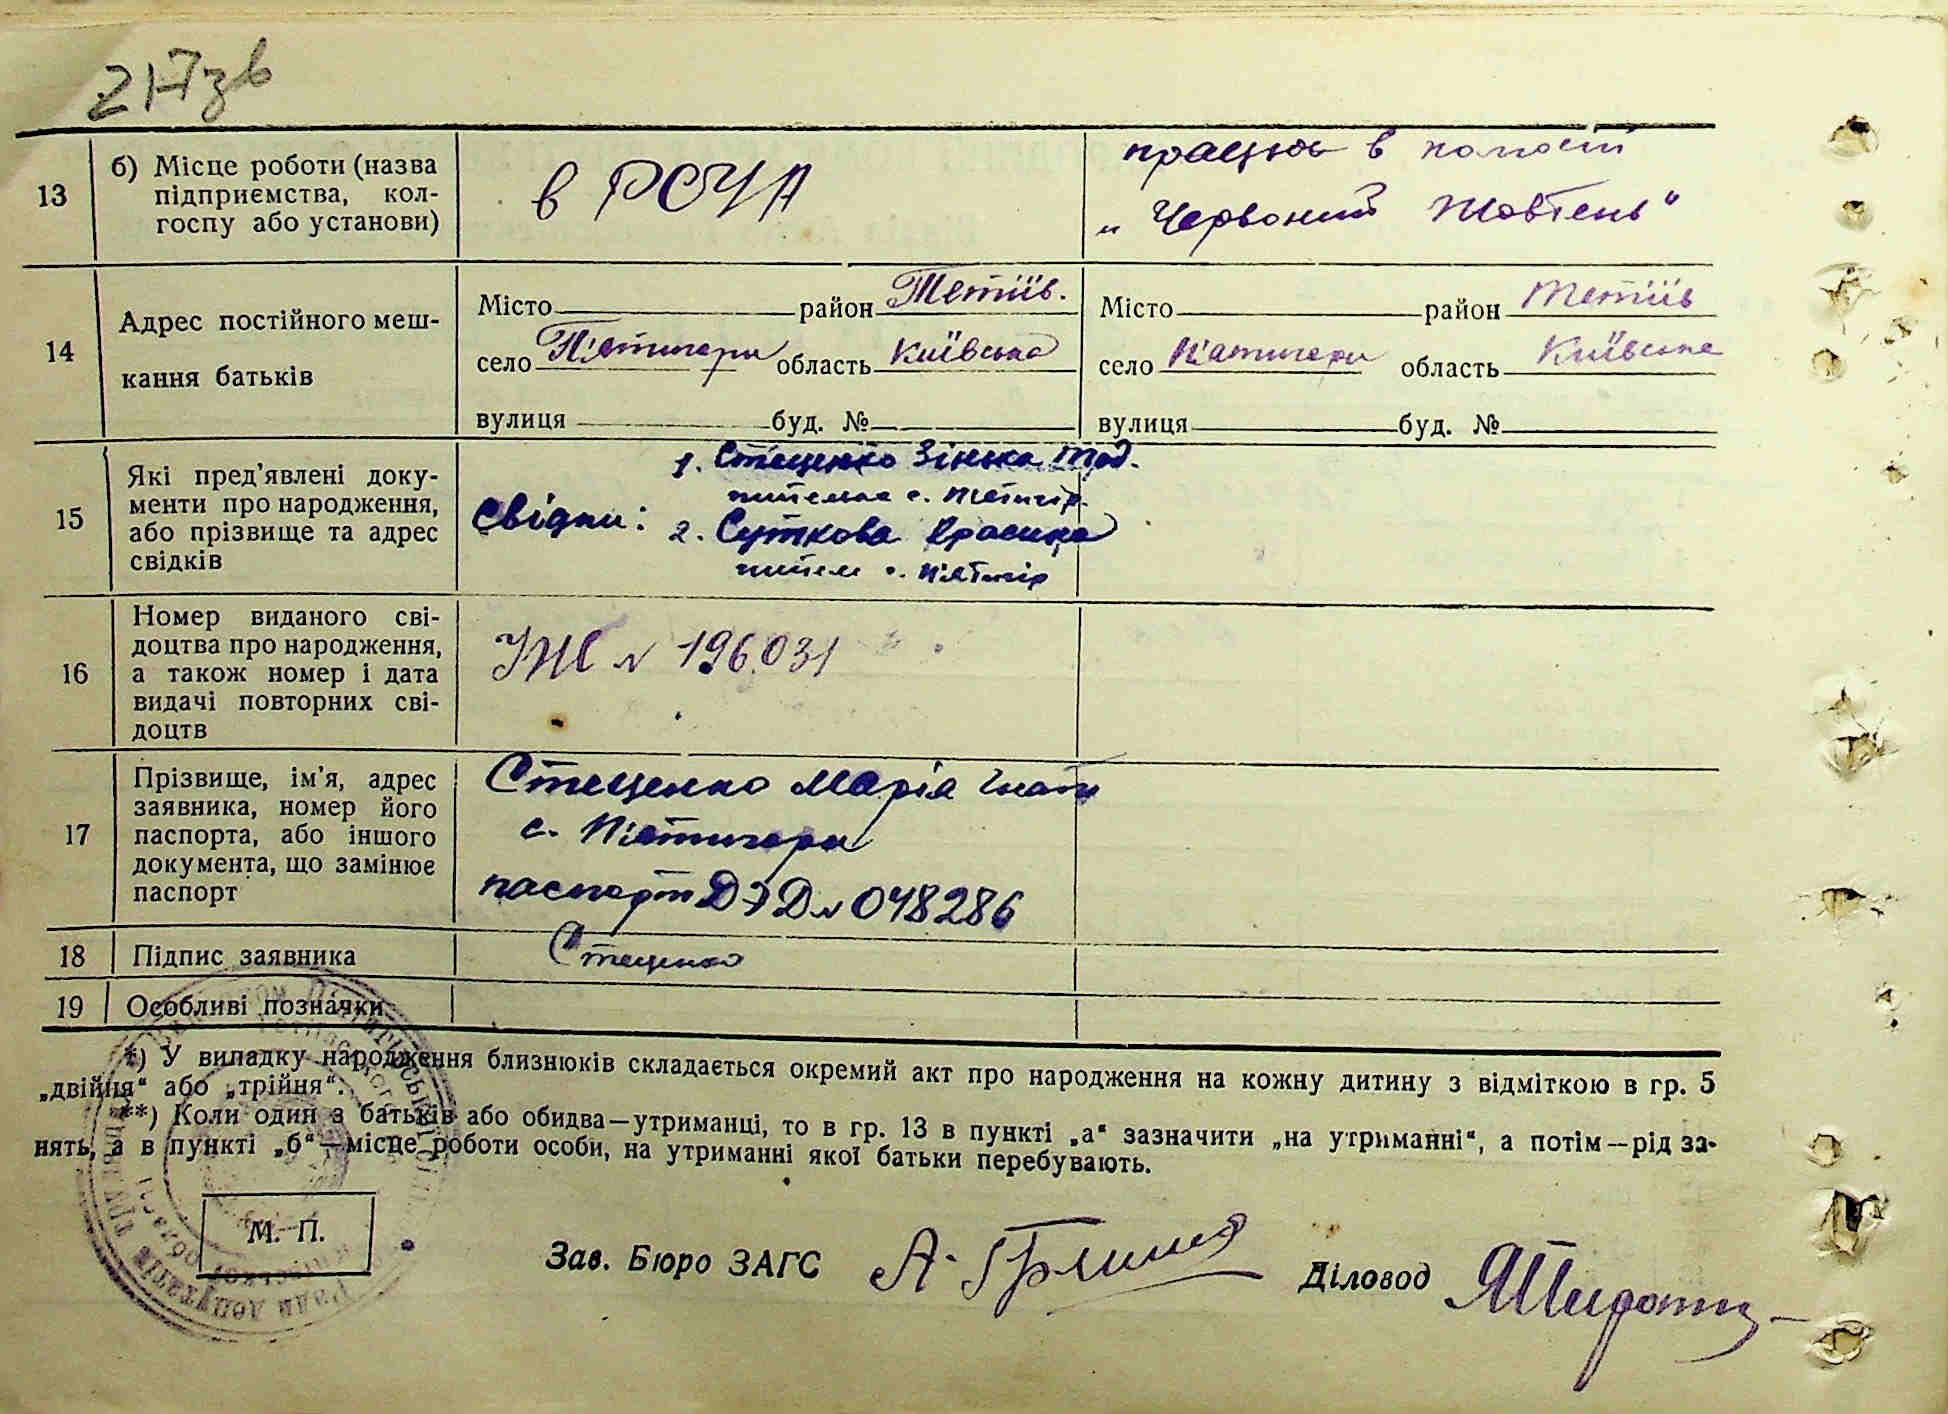 217зв
13
б) Місце роботи (назва
підприємства, кол-
госпу або установи)
в РСЧА
працює в колгосп
„Червоний Жовтень“
14
Адрес постійного меш-
кання батьків
Місто район Тетіїв.
село П'ятигори область Київська
вулиця буд. №
Місто район Тетіїв
село П'ятигори область Київська
вулиця буд. №
15
Які пред’явлені доку-
менти про народження,
або прізвище та адрес
свідків
Свідки:
1. Стеценко Зінька
с. П'ятигір.
2. Суткова
с. П'ятигір
16
Номер виданого сві-
доцтва про народження,
а також номер і дата
видачі повторних сві-
доцтв
УЖ № 196031
17
Прізвище, ім’я, адрес
заявника, номер його
паспорта, або іншого
документа, що замінює
паспорт
Стеценко Марія Гнати
с. П'ятигори
паспорт ДЭД № 048286
18
Підпис заявника
Стеценко
19
Особливі позначки
*) У випадку народження близнюків складається окремий акт про народження на кожну дитину з відміткою в гр. 5
„двійня“ або „трійня“.
**) Коли один з батьків або обидва—утриманці, то в гр. 13 в пункті „а“ зазначити „на утриманні“, а потім—рід за-
нять, а в пункті „б“—місце роботи особи, на утриманні якої батьки перебувають.
М. П.
Зав. Бюро ЗАГС
Діловод